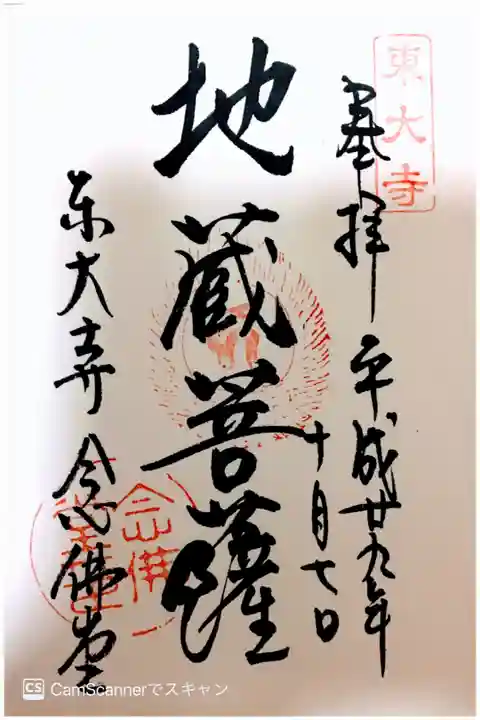 東大寺
奉拝 平成廿九年
十月七日
地蔵菩薩
東大寺 念佛堂
念佛
CamScannerでスキャン